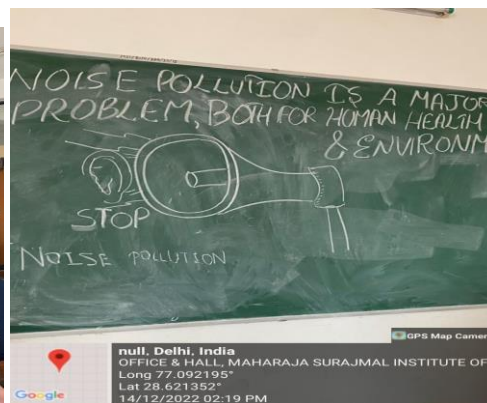 NOISE POLLUTION IS A MAJOR
PROBLEM, BOTH FOR HUMAN HEALTH
& ENVIRONM
STOP
NOISE POLLUTION
GPS Map Camer
null, Delhi, India
OFFICE & HALL, MAHARAJA SURAJMAL INSTITUTE OF
Long 77.092195°
Lat 28.621352°
14/12/2022 02:19 PM
Google